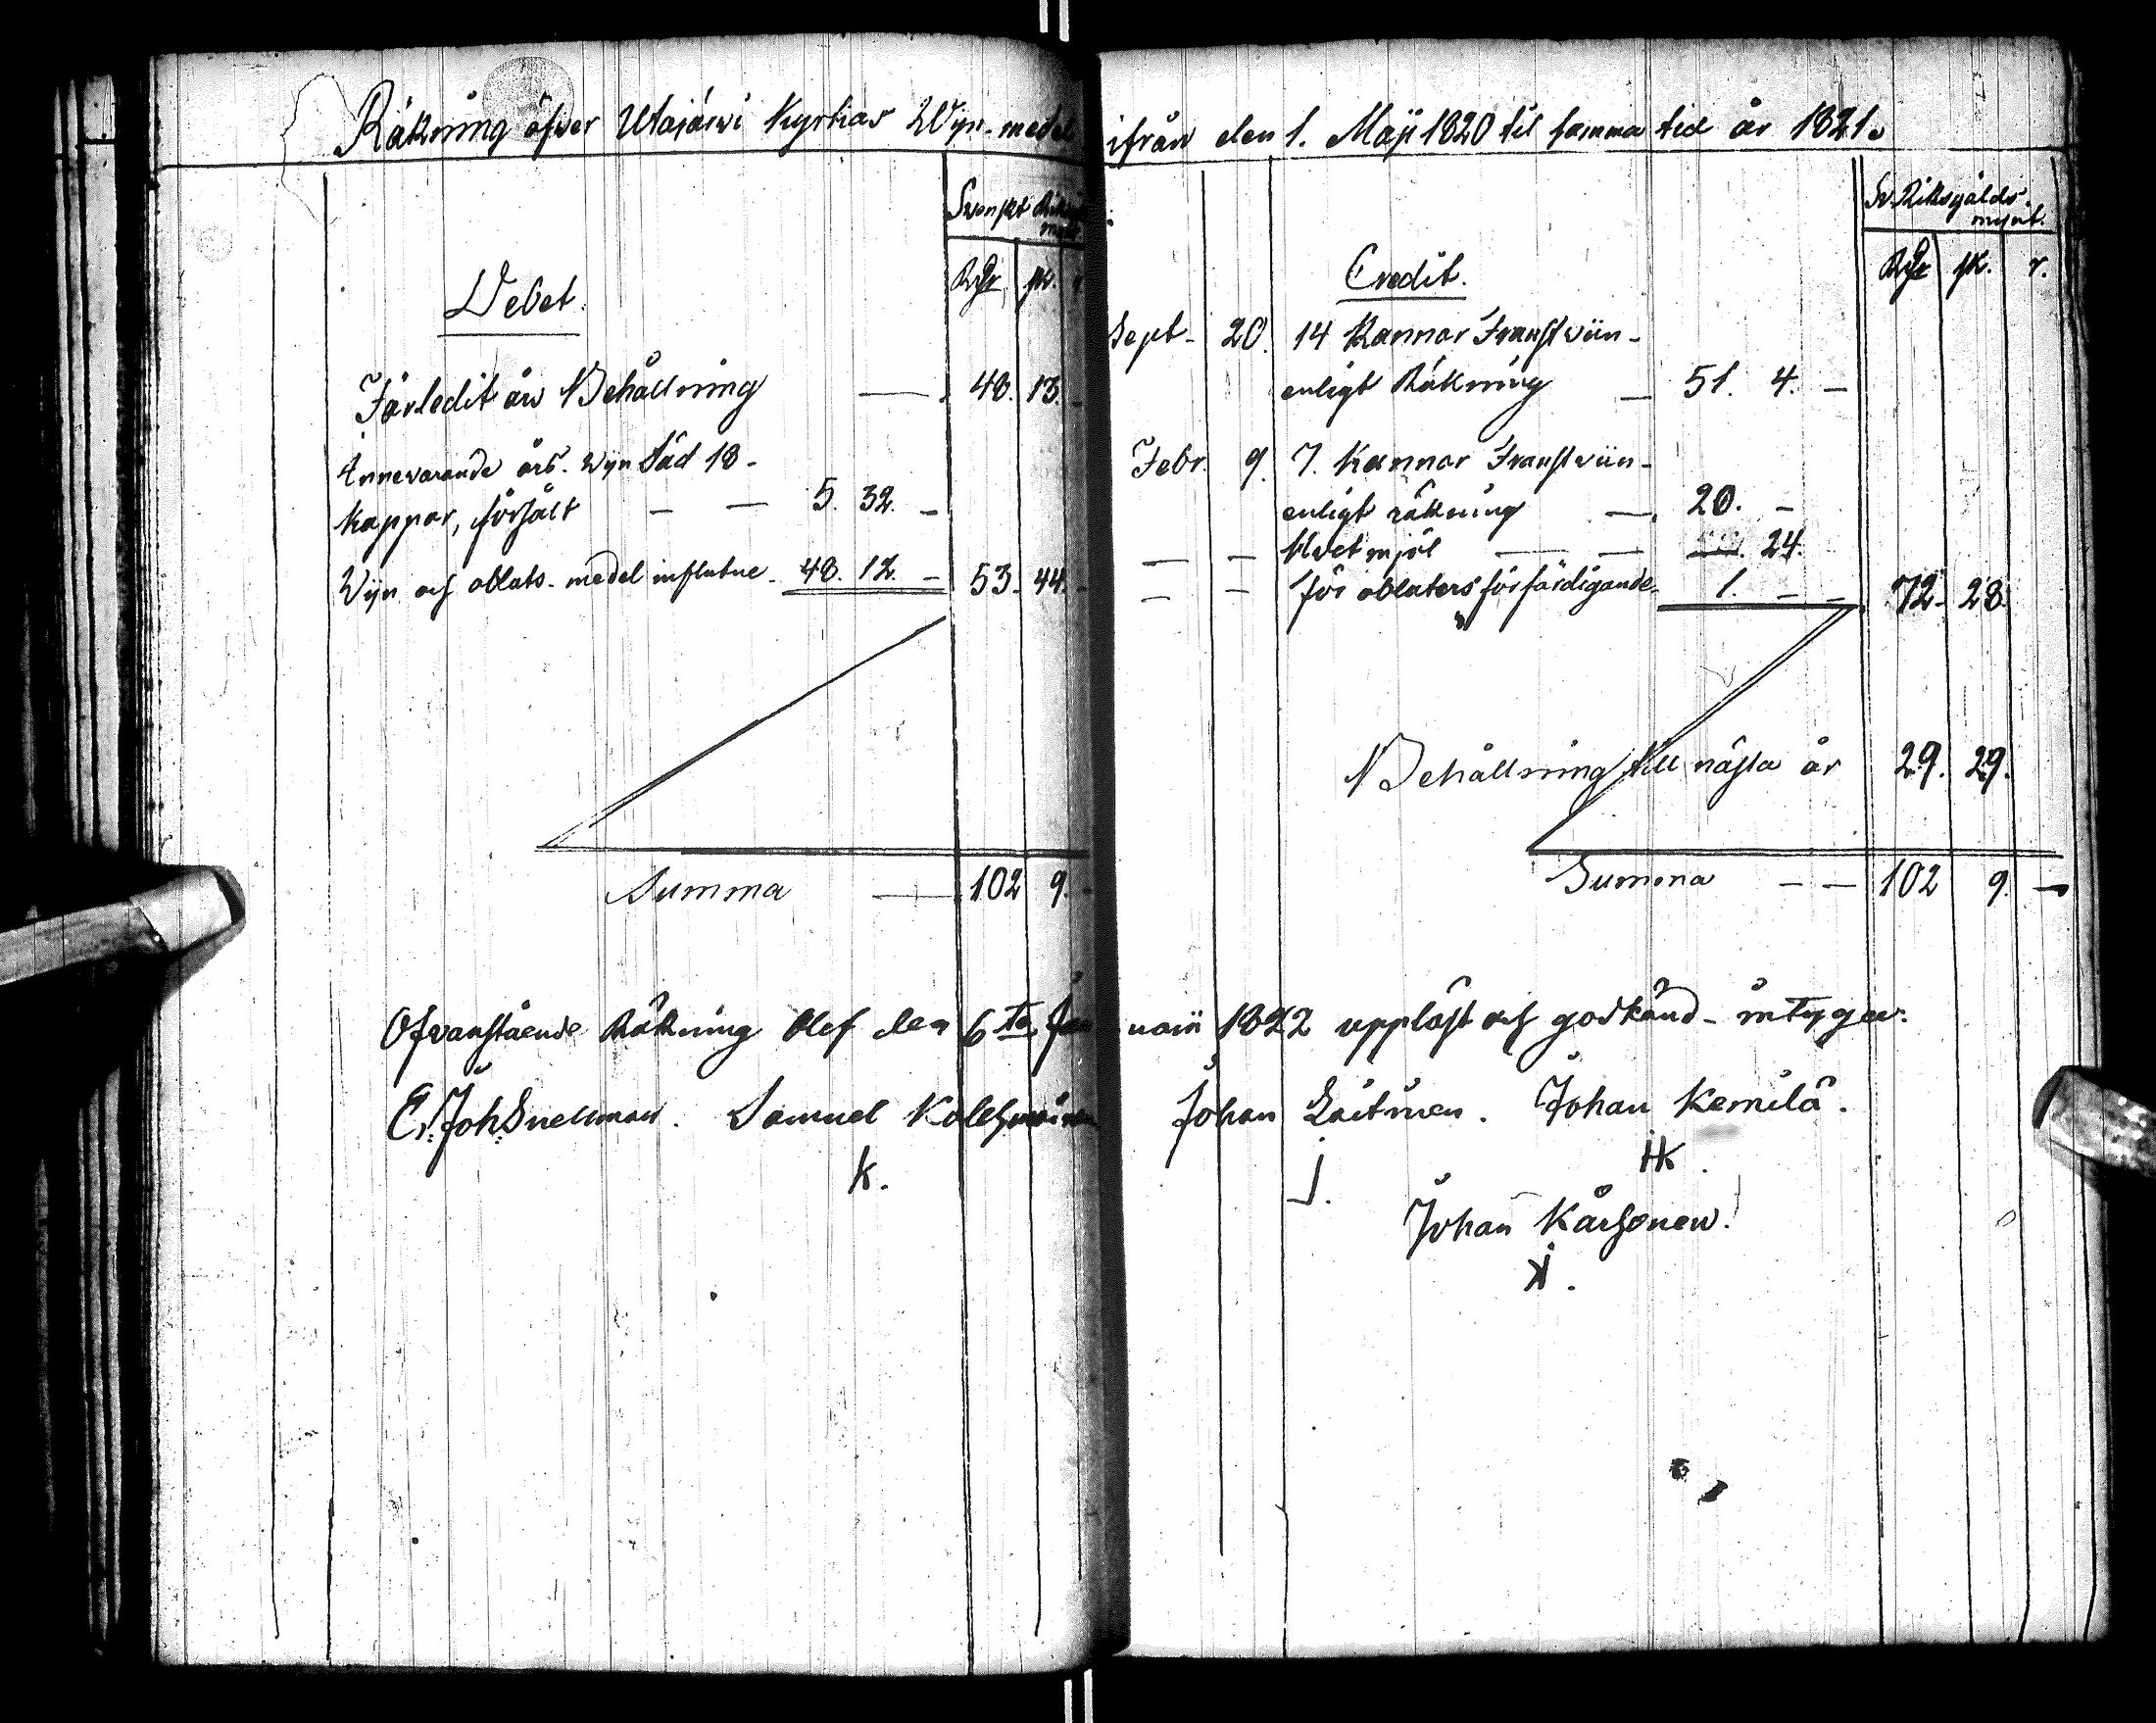 Räkning öfver Utajärvi Kyrkas Wijn-medel ifrån den 1. Maji 1820 til samma tid år 1821.
Debet.
Svenskt
Rdr sk.
Förledit års Behållning — 48. 13. -
Innevarande års Wijn Säd 18-
kappar, försålt — — 5. 32. -
Wijn och oblats-medel influtne - 48. 12. - 53. 44. -
Summa — 102 9.
Credit.
Sv. Riksgälds
mynt.
Rdr sk. r.
Sept- 20. 14 Kannor Franskt viin-
enligt Räkning — 51. 4. —
Febr. 9. 7. Kannor Franskt viin-
enligt räkning — 20. -
— — Hvetmjöl — — 24.
— — för oblaters förfärdigande 1. - - 72- 28.
Behållning till nästa år 29. 29.
Summa — — 102 9. —
Ofvanstående Räkning blef den 6te Januarii 1822 uppläst och godkänd - intygar:
Er. Joh. Snellman. Samuel Kolehmainen Johan Laitinen. Johan Kemilä.
K. J. HK.
Johan Karhonen.
K.